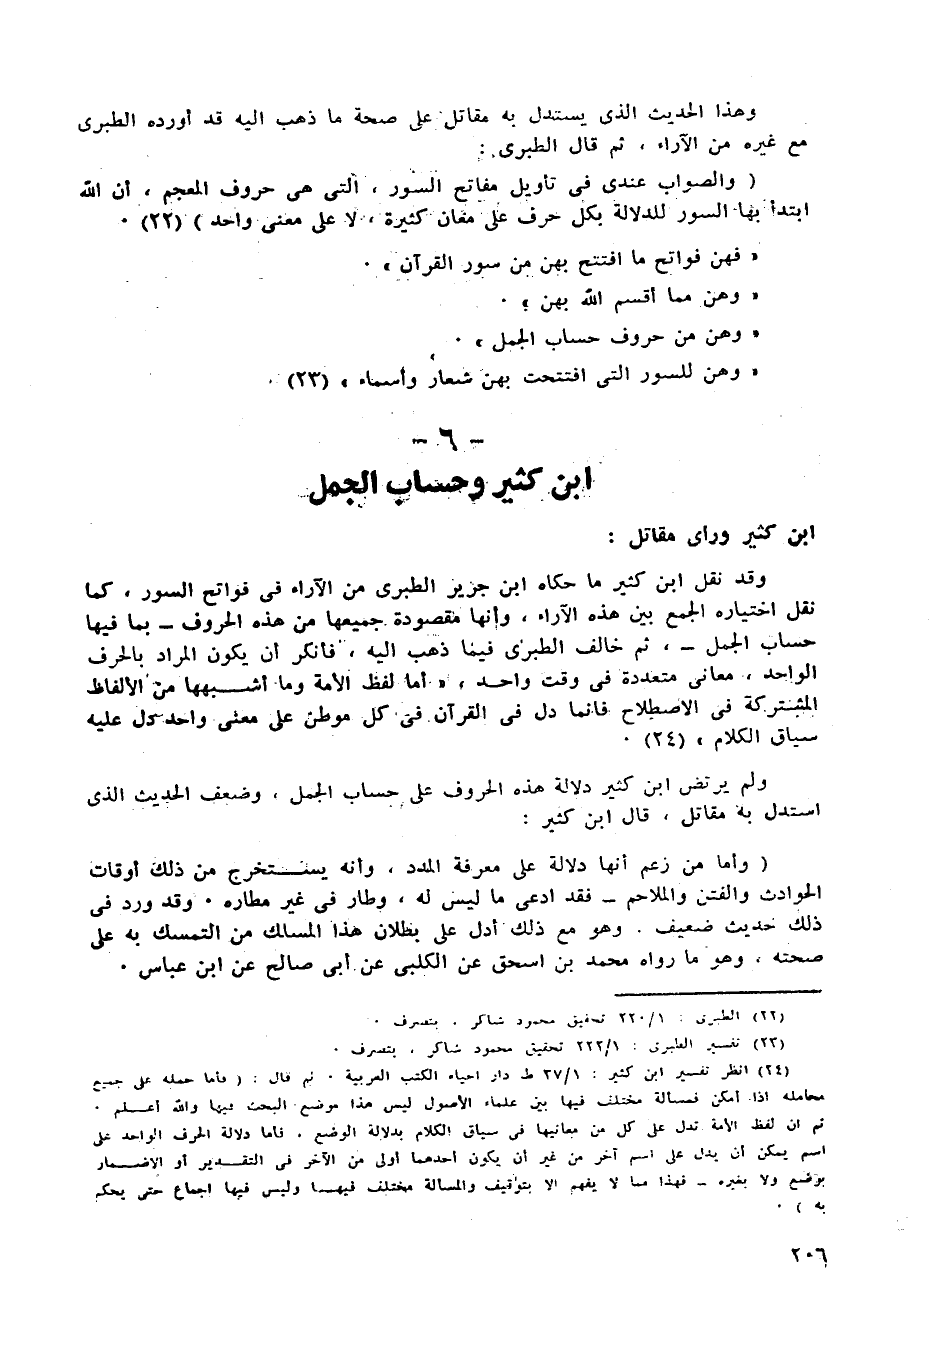 وهذا الحديث الذى يستدل به مقاتل على صحة ما ذهب اليه قد أورده الطبرى
مع غيره من الآراء ، ثم قال الطبرى :
( والصواب عندى فى تأويل مفاتح السور ، التى هى حروف المعجم ، أن الله
ابتدأ بها السور للدلالة بكل حرف على معان كثيرة ، لا على معنى واحد ) (٢٢) ٠
« فهن فواتح ما افتتح بهن من سور القرآن » ٠
« وهن مما أقسم الله بهن » ٠
« وهن من حروف حساب الجمل » ٠
« وهن للسور التى افتتحت بهن شعار وأسماء » (٢٣) ٠
– ٦ –
ابن كثير وحساب الجمل
ابن كثير ورأى مقاتل :
وقد نقل ابن كثير ما حكاه ابن جرير الطبرى من الآراء فى فواتح السور ، كما
نقل اختياره الجمع بين هذه الآراء ، وأنها مقصودة جميعها من هذه الحروف – بما فيها
حساب الجمل – ، ثم خالف الطبرى فيما ذهب اليه ، فأنكر أن يكون المراد بالحرف
الواحد ، معانى متعددة فى وقت واحد ، « أما لفظ الأمة وما أشبهها من الألفاظ
المشتركة فى الاصطلاح فانما دل فى القرآن فى كل موطن على معنى واحد دل عليه
سياق الكلام » (٢٤) ٠
ولم يرتض ابن كثير دلالة هذه الحروف على حساب الجمل ، وضعف الحديث الذى
استدل به مقاتل ، قال ابن كثير :
( وأما من زعم أنها دلالة على معرفة المدد ، وأنه يستخرج من ذلك أوقات
الحوادث والفتن والملاحم – فقد ادعى ما ليس له ، وطار فى غير مطاره ٠ وقد ورد فى
ذلك حديث ضعيف ٠ وهو مع ذلك أدل على بطلان هذا المسالك من التمسك به على
صحته ، وهو ما رواه محمد بن اسحق عن الكلبى عن أبى صالح عن ابن عباس ٠
(٢٢) الطبرى : ٢٢٠/١ تحقيق محمود شاكر ، بتصرف ٠
(٢٣) تفسير الطبرى : ٢٢٢/١ تحقيق محمود شاكر ، بتصرف ٠
(٢٤) انظر تفسير ابن كثير : ٣٧/١ ط دار احياء الكتب العربية ٠ ثم قال : ( فأما حمله على جميع
محامله اذا أمكن فمسألة مختلف فيها بين علماء الأصول ليس هذا موضع البحث فيها والله أعلم ٠
ثم ان لفظ الأمة تدل على كل من معانيها فى سياق الكلام بدلالة الوضع ، فأما دلالة الحرف الواحد على
اسم يمكن أن يدل على اسم آخر من غير أن يكون أحدهما أولى من الآخر فى التقدير أو الاضمار
بوضع ولا بغيره – فهذا مما لا يفهم الا بتوقيف والمسألة مختلف فيها وليس فيها اجماع حتى يحكم
به ) ٠
٢٠٦